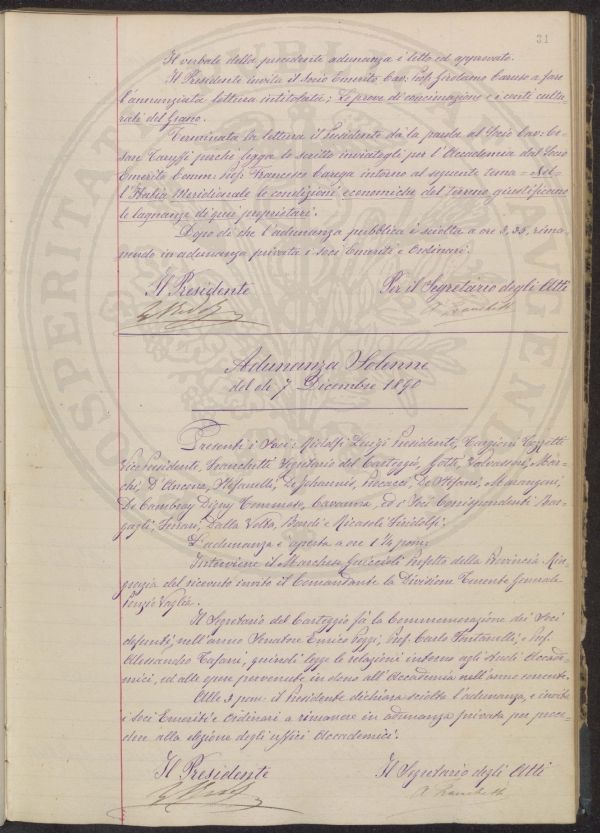 31
Il verbale della precedente adunanza è letto ed approvato.
Il Presidente invita il Socio Emerito Cav: Prof. Girolamo Caruso a fare
l'annunziata lettura intitolata; Le prove di concimazione e i conti cultu=
rali del Grano.
Terminata la lettura il Presidente dà la parola al Socio Cav: Ce=
sare Taruffi perché legga lo scritto inviatogli per l'Accademia dal Socio
Emerito Comm: Prof. Francesco Carega intorno al seguente tema = Nel=
l'Italia Meridionale le condizioni economiche del terreno giustificano
le lagnanze di quei proprietari.
Dopo di che l'adunanza pubblica è sciolta a ore 3,35, rima=
nendo in adunanza privata i Soci Emeriti e Ordinari.
Il Presidente
Per il Segretario degli Atti
Adunanza Solenne
del dì 7 Dicembre 1890
Presenti i Soci: Ridolfi Luigi Presidente, Targioni Tozzetti
Vice Presidente, Franchetti Segretario del Carteggio, Gotti, Valvassori, Mar=
chi, D'Ancona, Stefanelli, De Johannis, Fucacci, De Stefani, Marangoni,
De Cambray Digny Tommaso, Cavanna, ed i Soci Corrispondenti Bar=
gagli, Ferrari, Dalla Volta, Bardi e Ricasoli Firidolfi.
L'adunanza è aperta a ore 1 1/4 pom:
Interviene il Marchese Guiccioli Prefetto della Provincia. Rin=
grazia del ricevuto invito il Comandante la Divisione Tenente Generale
Driquet Voglia.
Il Segretario del Carteggio fà la Commemorazione dei Soci
defunti, nell'anno Senatore Enrico Poggi, Prof. Carlo Fontanelli, e Prof.
Alessandro Tafani, quindi legge le relazioni intorno agli studi Accade=
mici, ed alle opere pervenute in dono all'Accademia nell'anno corrente.
Alle 3 pom: il Presidente dichiara sciolta l'adunanza, e invita
i Soci Emeriti e Ordinari a rimanere in adunanza privata per proce=
dere alla elezione degli uffici Accademici.
Il Presidente
Il Segretario degli Atti